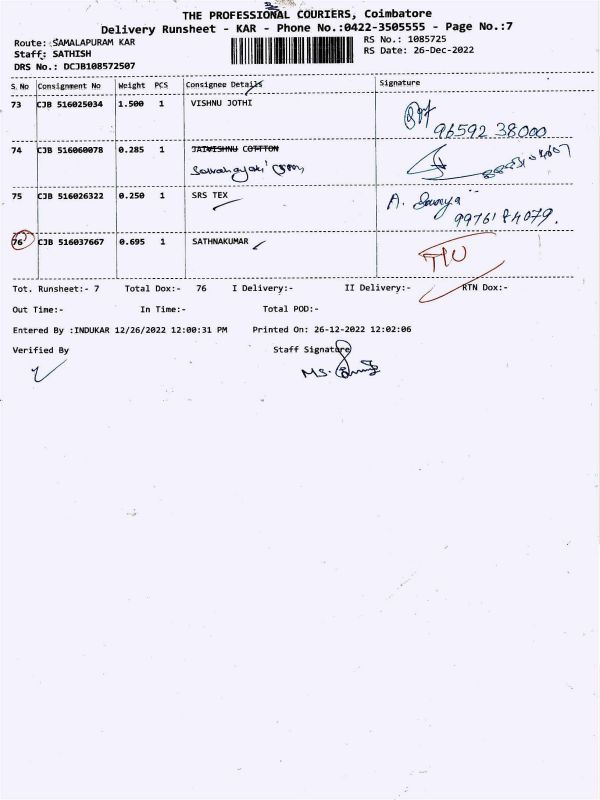 THE PROFESSIONAL COURIERS, Coimbatore
Delivery Runsheet - KAR - Phone No.:0422-3505555 - Page No.:7
Route: SAMALAPURAM KAR
RS No.: 1085725
Staff: SATHISH
RS Date: 26-Dec-2022
DRS No.: DCJB108572507
S.No Consignment No Weight PCS Consignee Details Signature
73 CJB 516025034 1.500 1 VISHNU JOTHI
96592 38000
74 CJB 516060078 0.285 1 JAIVISHNU COTTTON
75 CJB 516026322 0.250 1 SRS TEX A. Saranya
99761 84079.
76 CJB 516037667 0.695 1 SATHNAKUMAR
Tot. Runsheet:- 7 Total Dox:- 76 I Delivery:- II Delivery:- RTN Dox:-
Out Time:- In Time:- Total POD:-
Entered By :INDUKAR 12/26/2022 12:00:31 PM Printed On: 26-12-2022 12:02:06
Verified By Staff Signature